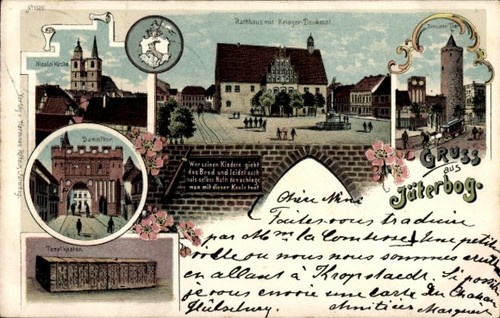 Nicolai Kirche
Rathhaus mit Krieger-Denkmal.
Dammthor.
Wer seinen Kindern giebt
das Brod und leidet nach
mals selbst Noth den schlage
man mit dieser Keule todt
GRUSS
aus
Jüterbog.
Tetzelkasten.
Chère
Faites-vous traduire
par Mme la Comtesse! Une petite
ville ou nous nous sommes
en allant à Kropstaedt. Si
je vous envoie une carte du
Amitiés Margaret